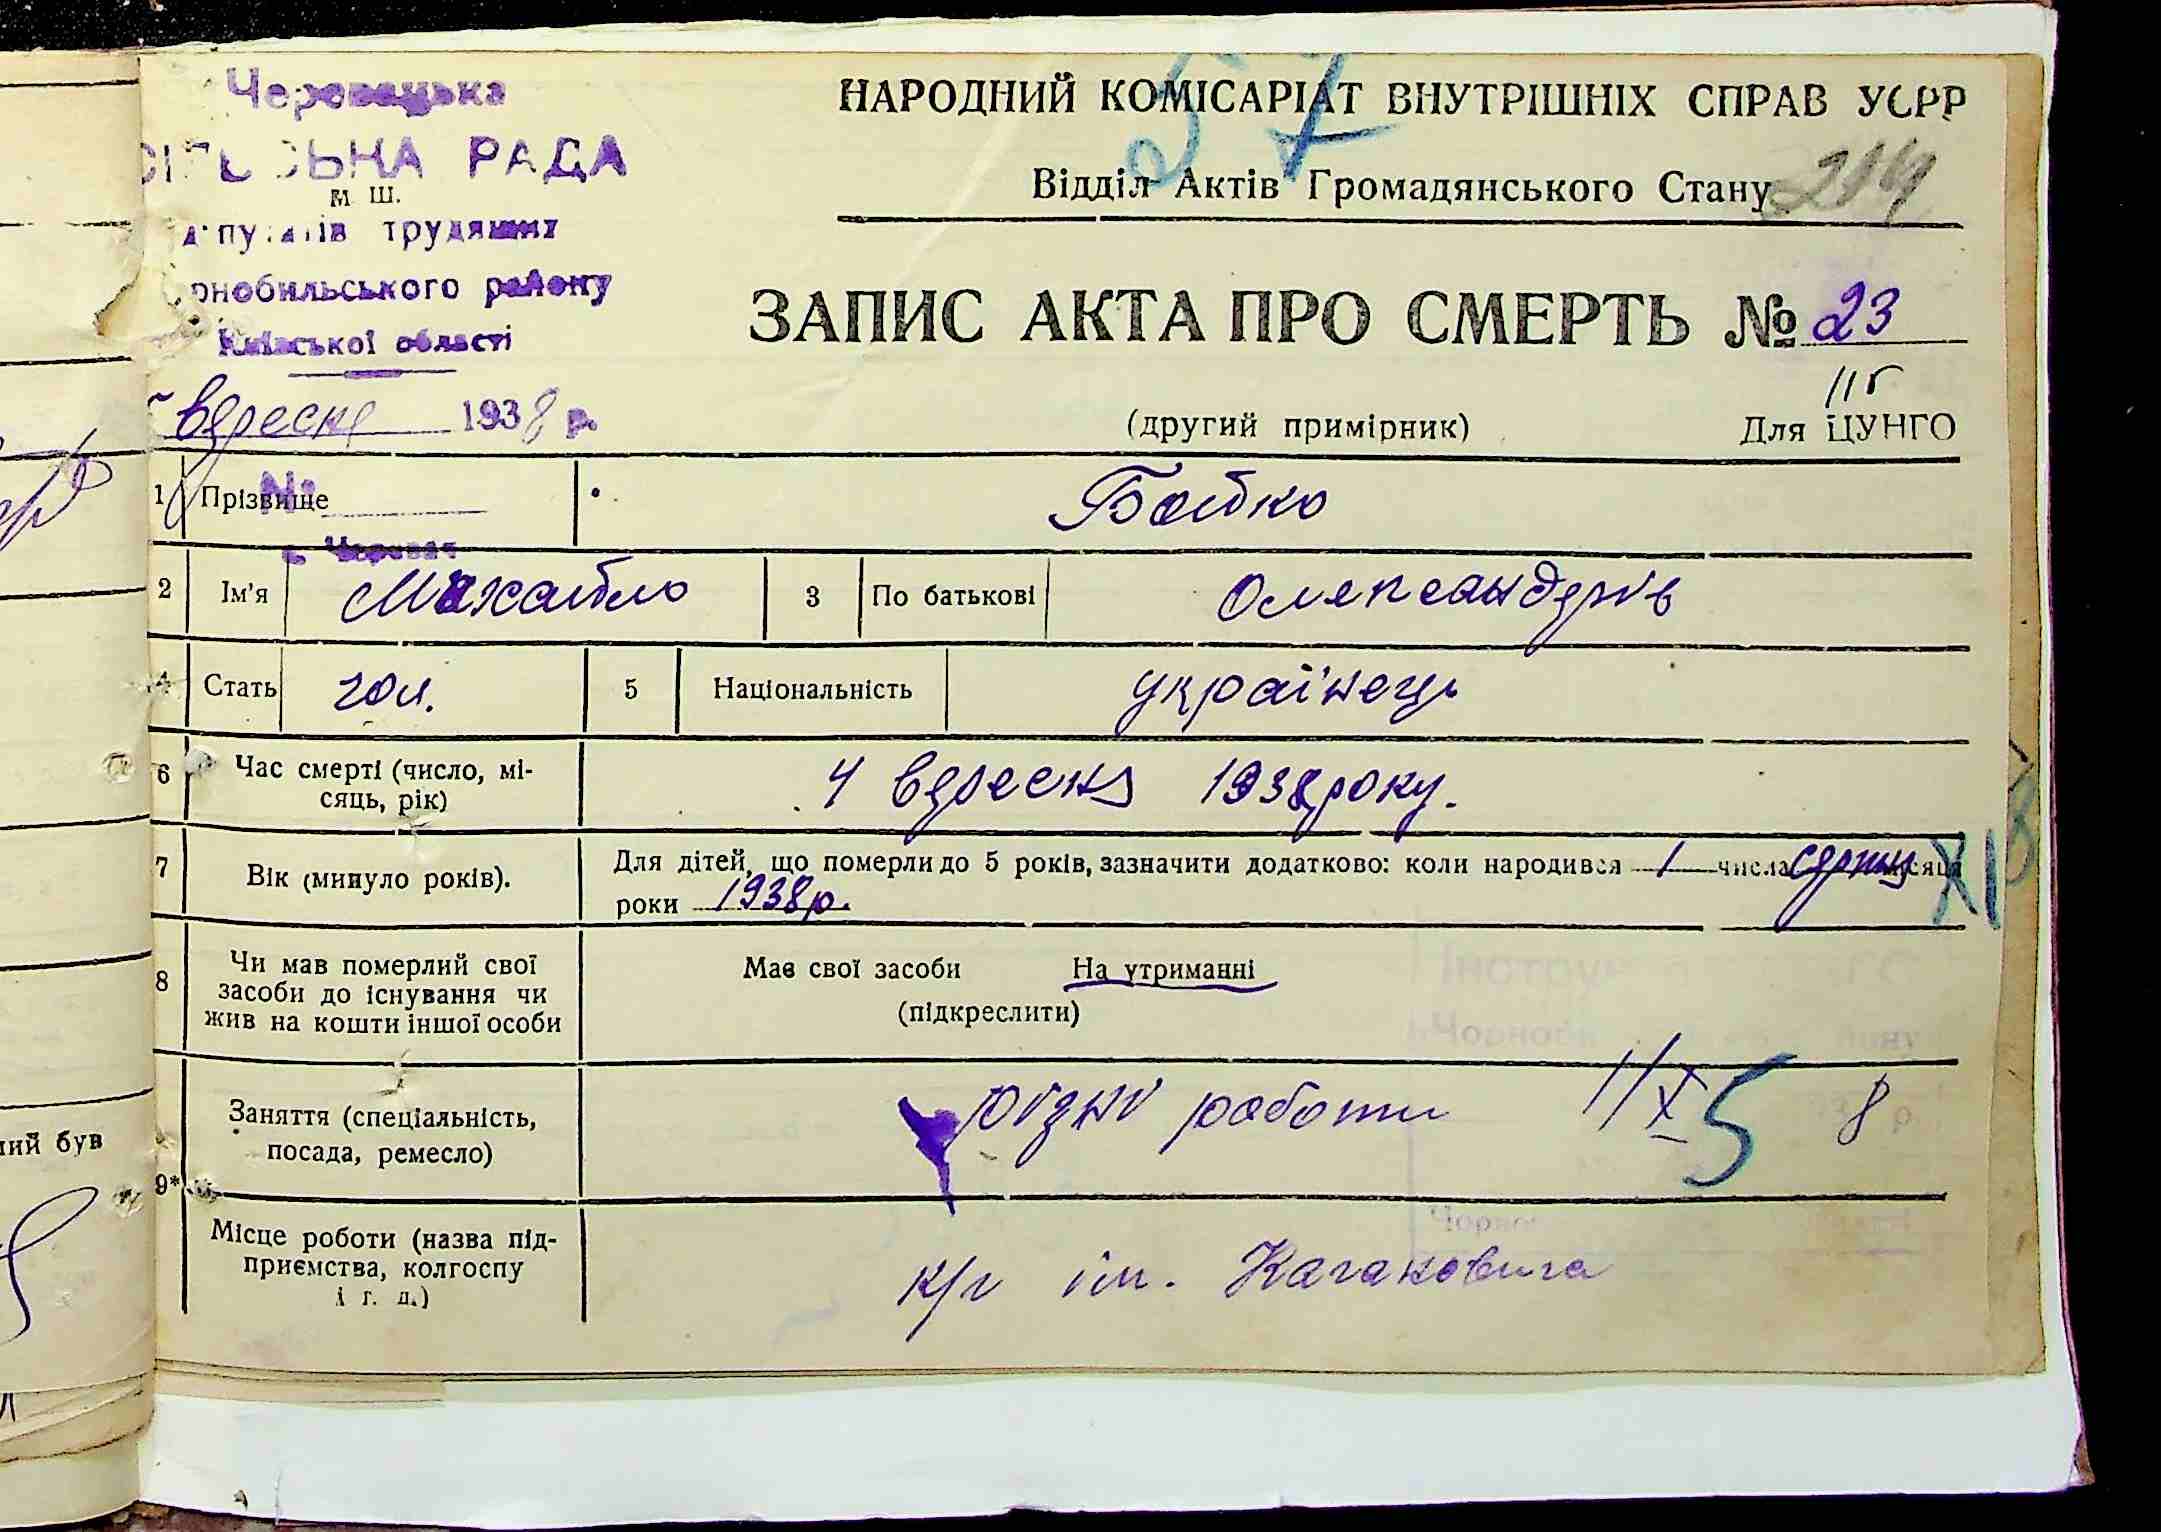 57
Черевацька
СІЛЬСЬКА РАДА
М Ш.
депутатів трудящих
Чорнобильського району
Київської області
вересня 1938 р.
№
с. Черевач
НАРОДНИЙ КОМІСАРІАТ ВНУТРІШНІХ СПРАВ УСРР
Відділ Актів Громадянського Стану
214
ЗАПИС АКТА ПРО СМЕРТЬ № 23
(другий примірник) Для ЦУНГО
1 Прізвище Бойко
2 Ім'я Михайло 3 По батькові Олександрів
4 Стать чол. 5 Національність українець
6 Час смерті (число, мі-
сяць, рік) 4 вересня 1938 року.
7 Вік (минуло років). Для дітей, що померли до 5 років, зазначити додатково: коли народився 1 числа серпня місяця
роки 1938 р.
XI
8 Чи мав померлий свої
засоби до існування чи
жив на кошти іншої особи
Має свої засоби На утриманні
(підкреслити)
9* Заняття (спеціальність,
посада, ремесло) різні роботи
11/X 5 8
Місце роботи (назва під-
приємства, колгоспу
і г. д.) к/г ім. Кагановича
ний був